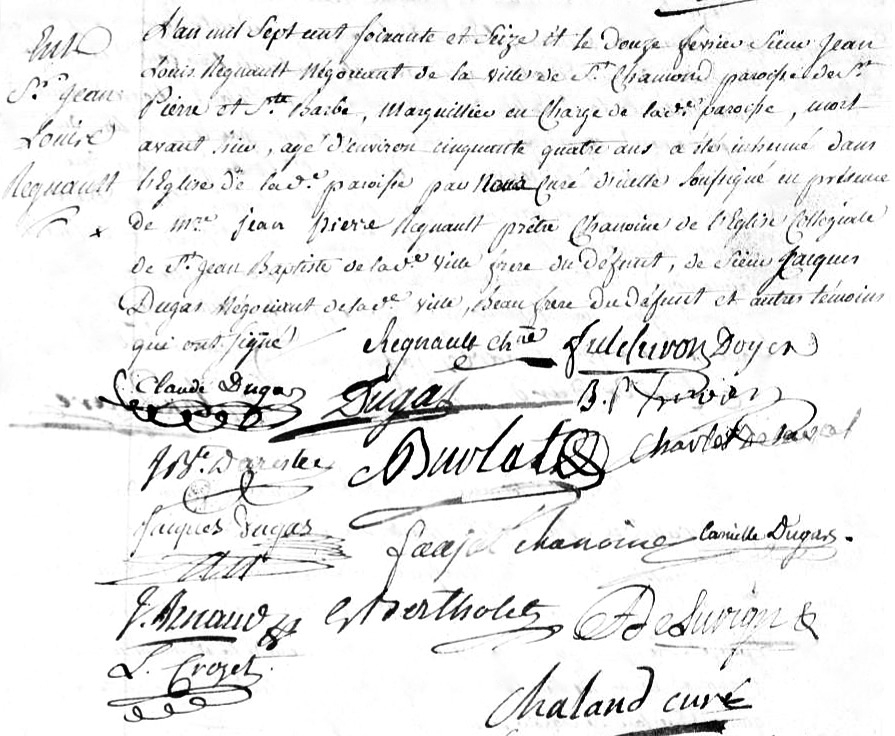 Ent.
Sr. Jean
Louis
Regnault
L'an mil Sept cent soixante et seize et le douze fevrier Sieur Jean
Louis Regnault Négociant de la ville de St. Chamond paroisse de St.
Pierre et Ste. Barbe, Marguillier en Charge de lad.e paroisse, mort
avant hier, agé d'environ cinquante quatre ans a été inhumé dans
l'Eglise de lad.e paroisse par Nous Curé d'icelle soussigné en présence
de mre. jean pierre Regnault prêtre Chanoine de l'Eglise Collegiale
de St. Jean Baptiste de lad.e ville frere du défunt, de Sieur Jacques
Dugas Négociant de lad.e ville, Beau frere du défunt et autres témoins
qui ont signé
Regnault chne Doyen
Claude Dugas Dugas
Jn. Bte. Dareste Burlat Charles
Jacques Dugas chanoine Camille Dugas.
J. Arnaud Bertholet
L. Crozet.
Chaland curé